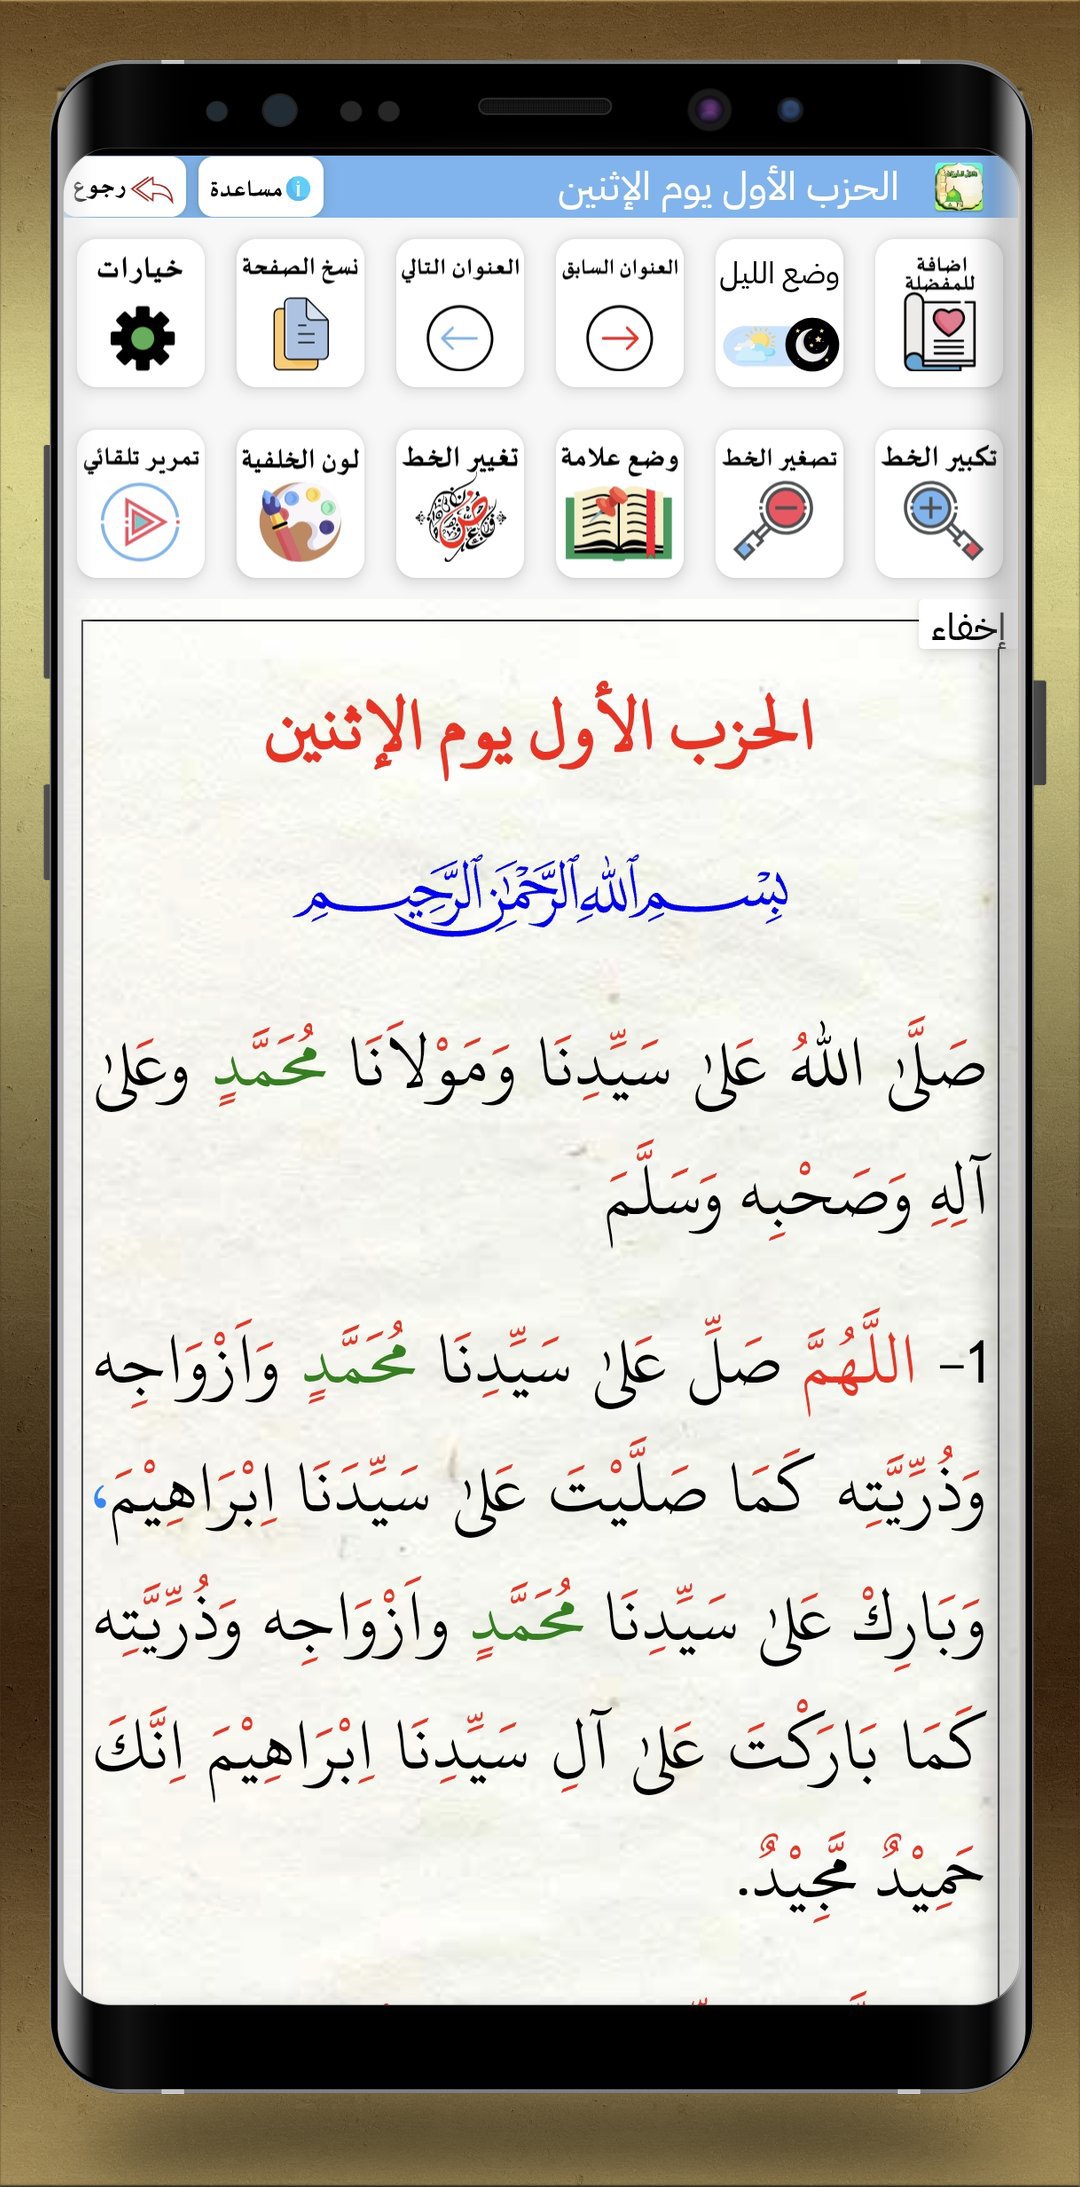 الحزب الأول يوم الإثنين
مساعدة
رجوع
اضافة
للمفضلة
وضع الليل
العنوان السابق
العنوان التالي
نسخ الصفحة
خيارات
تكبير الخط
تصغير الخط
وضع علامة
تغيير الخط
لون الخلفية
تمرير تلقائي
إخفاء
الحزب الأول يوم الإثنين
بِسْمِ ٱللَّهِ ٱلرَّحْمَٰنِ ٱلرَّحِيمِ
صَلَّىٰ اللهُ عَلىٰ سَيِّدِنَا وَمَوْلَانَا مُحَمَّدٍ وعَلىٰ
آلِهِ وَصَحْبِه وَسَلَّمَ
1- اللَّهُمَّ صَلِّ عَلىٰ سَيِّدِنَا مُحَمَّدٍ وَاَزْوَاجِه
وَذُرِّيَّتِه كَمَا صَلَّيْتَ عَلىٰ سَيِّدَنَا اِبْرَاهِيْمَ،
وَبَارِكْ عَلىٰ سَيِّدِنَا مُحَمَّدٍ واَزْوَاجِه وَذُرِّيَّتِه
كَمَا بَارَكْتَ عَلىٰ آلِ سَيِّدِنَا اِبْرَاهِيْمَ اِنَّكَ
حَمِيْدٌ مَّجِيْدٌ.